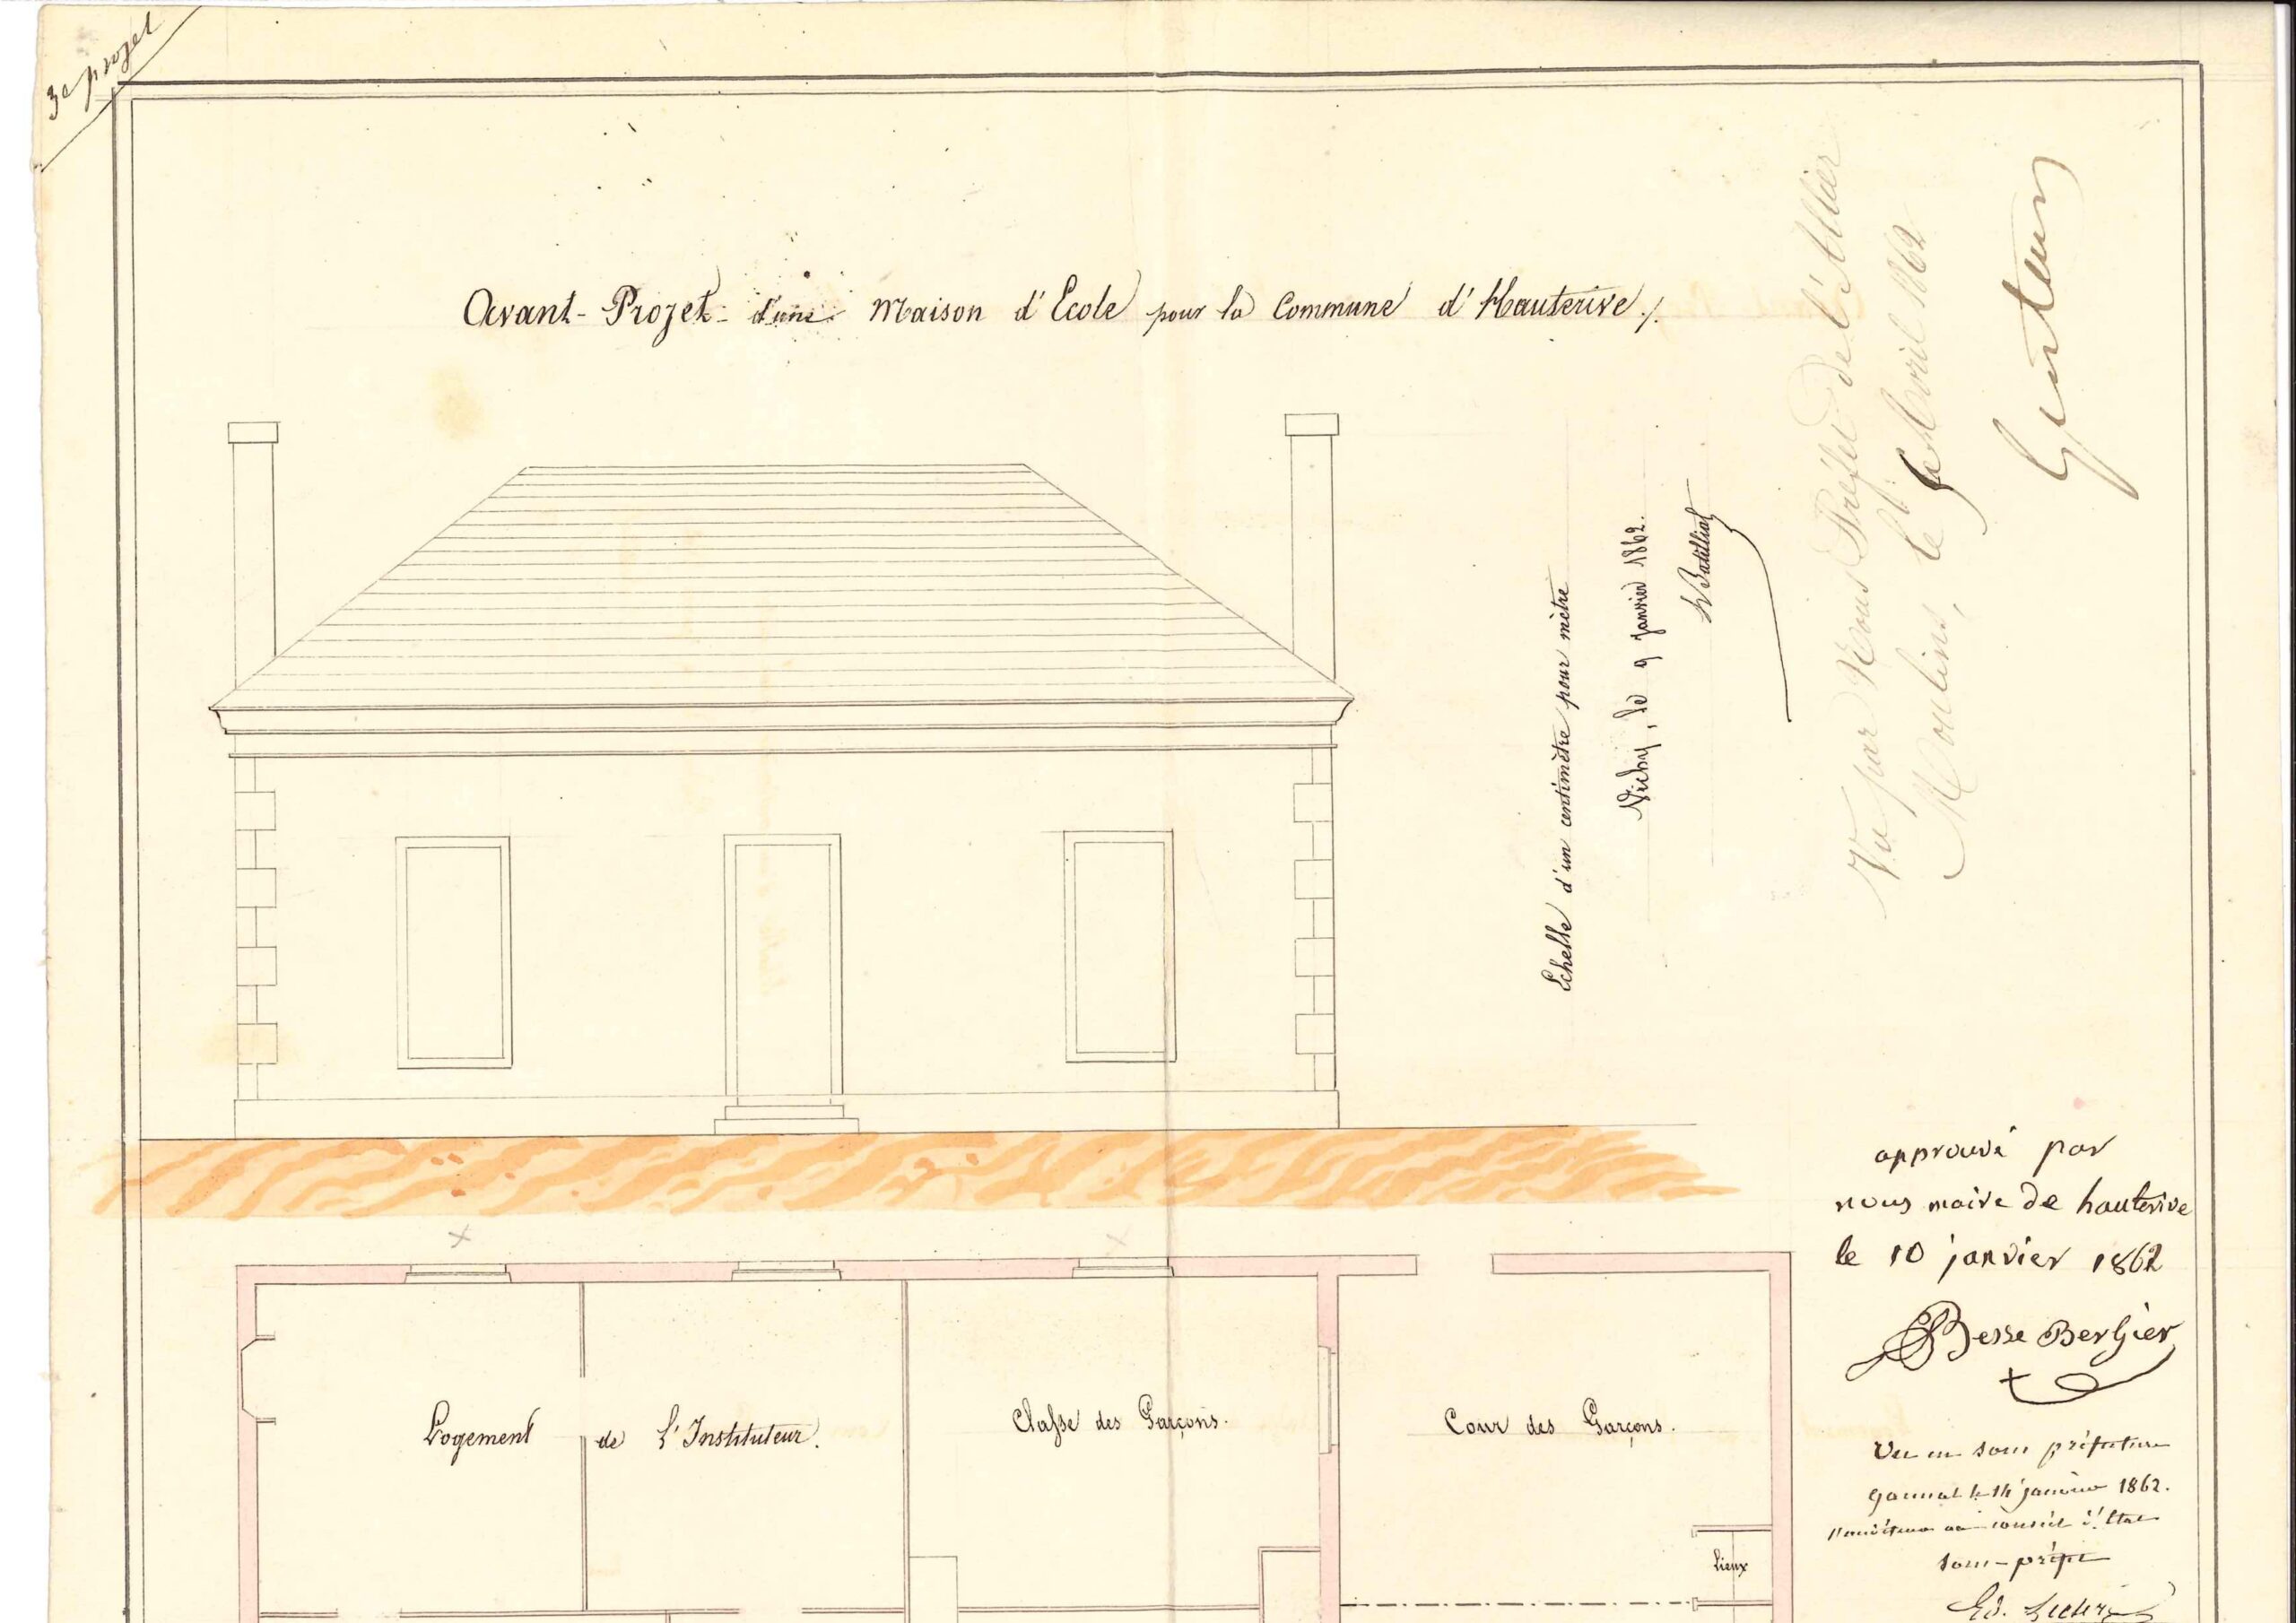 3e projet
Avant-Projet d'une Maison d'Ecole pour la Commune d'Hauterive./.
Echelle d'un centimètre pour mètre
Vichy, le 9 janvier 1862.
Batillat
Vu par Nous Préfet de l'Allier
Moulins, le Avril 1862
approuvé par
nous maire de hauterive
le 10 janvier 1862
Besse Bergier
Vu en sous préfecture
Gannat le 14 janvier 1862.
l'auditeur au conseil d'Etat
sous-préfet
Ed.
Logement de l'Instituteur.
Classe des Garçons.
Cour des Garçons.
Lieux